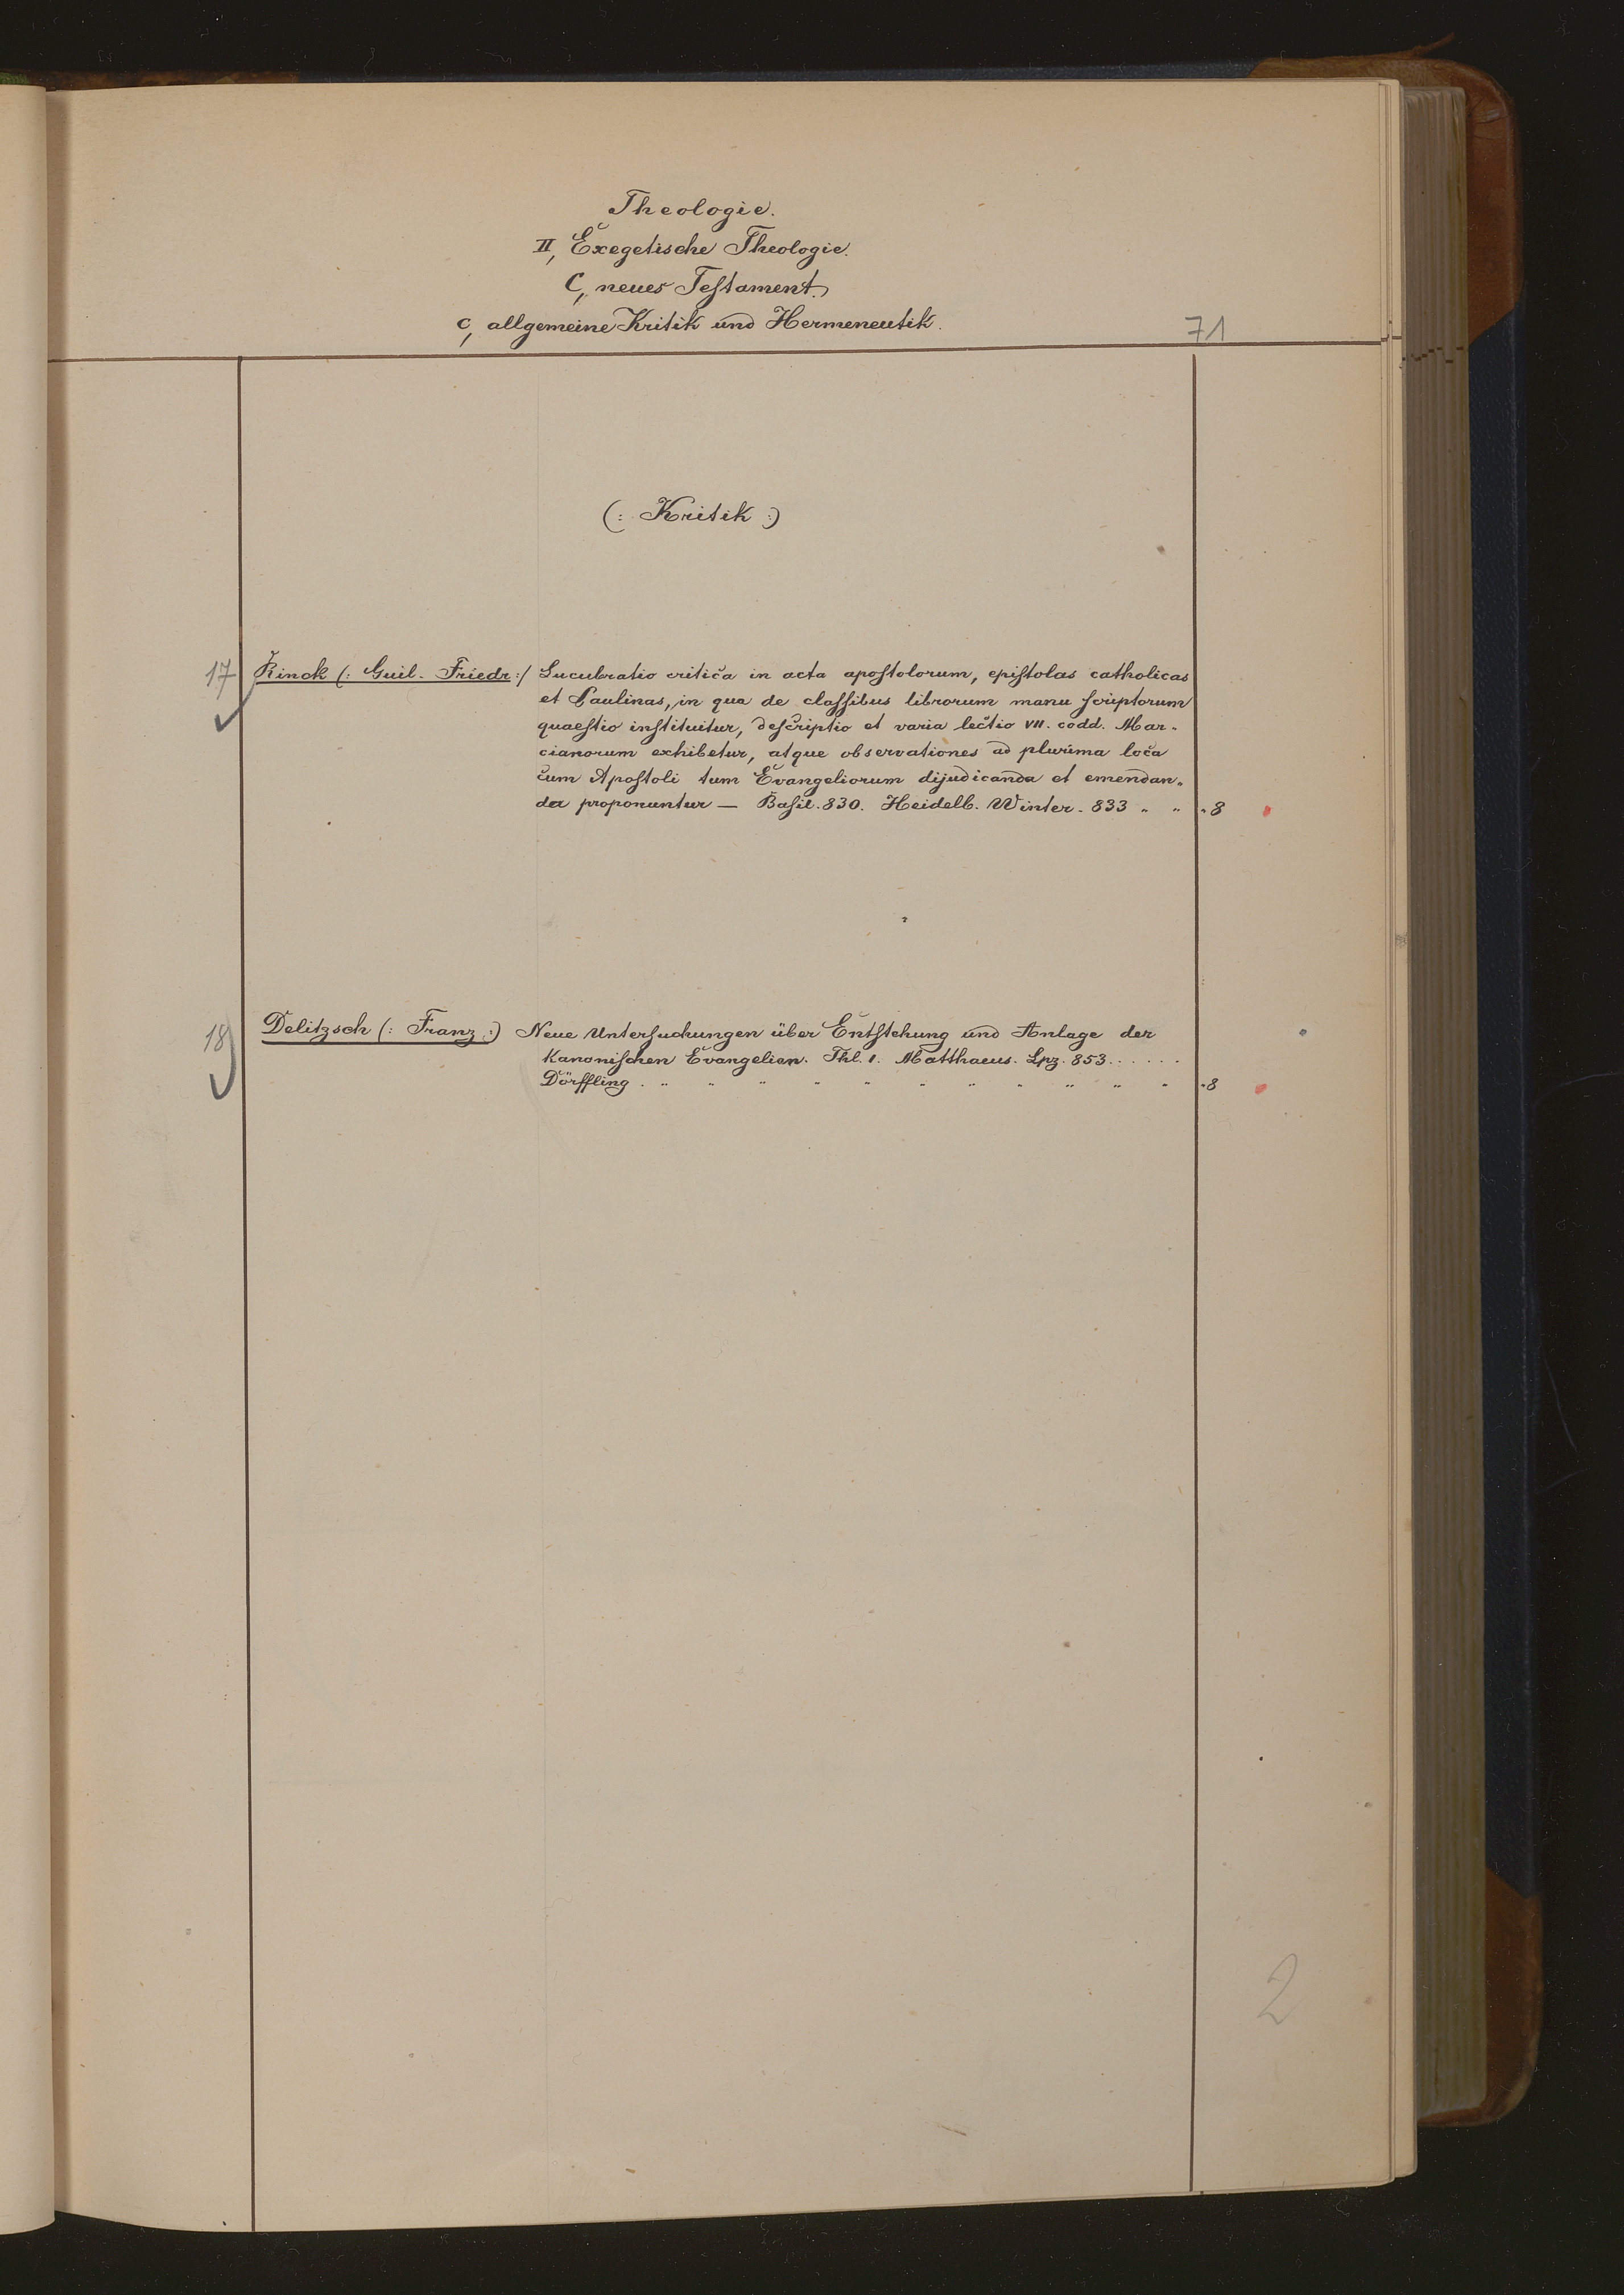 Theologie.
II, Exegetische Theologie.
C, neues Testament.
c, allgemeine Kritik und Hermeneutik.
71
(: Kritik :)
17 Rinck (: Guil. Friedr :/ Lucubratio critica in acta apostolorum, epistolas catholicas
et Paulinas, in qua de classibus librorum manu scriptorum
quaestio instituitur, descriptio et varia lectio VII. codd. Mar-
cianorum exhibetur, atque observationes ad plurima loca
cum Apostoli tum Evangeliorum dijudicanda et emendan-
da proponuntur — Basil. 830. Heidelb. Winter. 833 " " " 8
18 Delitzsch (: Franz :) Neue Untersuchungen über Entstehung und Anlage der
Kanonischen Evangelien. Thl. 1. Matthaeus. Lpz. 853 . . . . .
Dörffling . " " " " " " " " " " " " 8
2